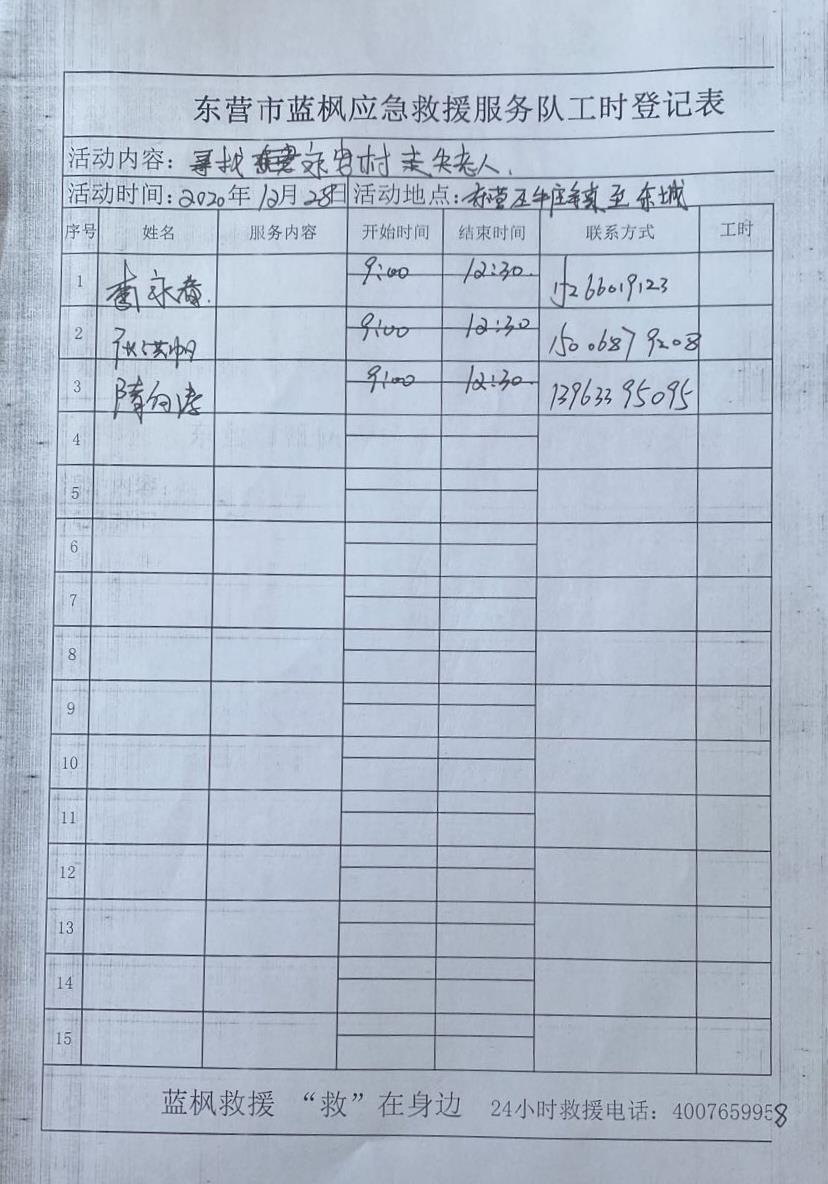 东营市蓝枫应急救援服务队工时登记表
活动内容：寻找 村走失老人.
活动时间：2020年12月28日 活动地点：东营区牛庄镇至东城
序号 姓名 服务内容 开始时间 结束时间 联系方式 工时
1 李永春. 9:00 12:30. 15266019123
2 张洪帅 9:00 12:30 15006879208
3 隋向涛 9:00 12:30. 13963395095
4
5
6
7
8
9
10
11
12
13
14
15
蓝枫救援 “救”在身边 24小时救援电话：4007659958